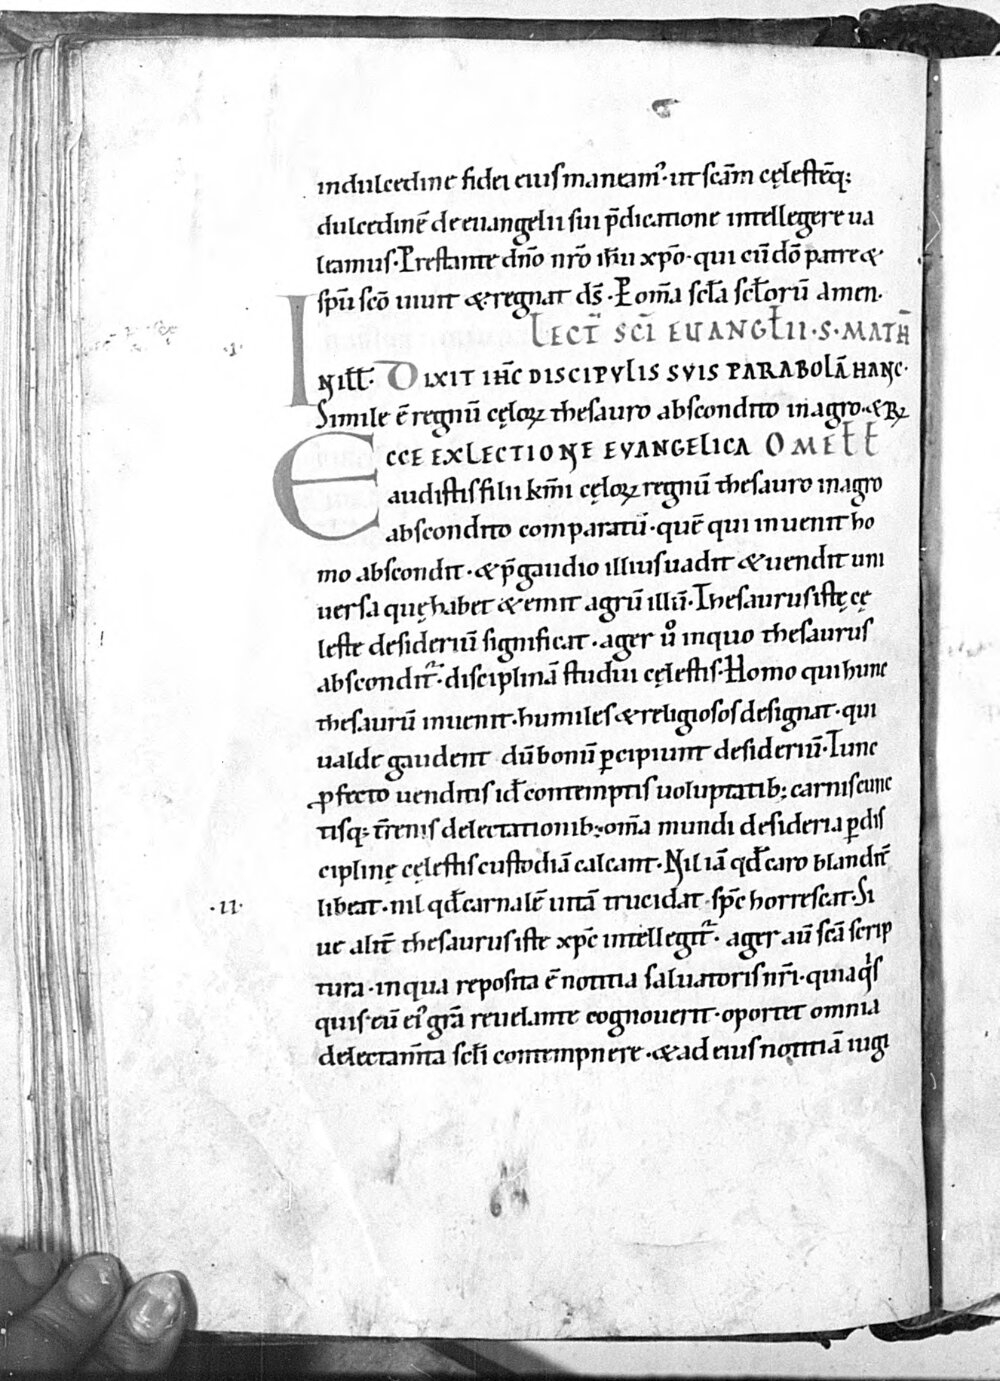 indulcedine fidei eius maneam᷒· ut scām cęlestēq;
dulcedinē de euangelii sui p̄dicatione intellegere ua
leamus· Prestante dn̄o nr̄o ih̄u xp̄o· qui cū dō patre &
sp̄u scō uiuit & regnat ds̄· P om̄a scl̄a scl̄orū amen·
LECT̄ SCĪ EUANGL̄II·S·MATH̄
·I· IN ILL̄T· DIXIT IH̄C DISCIPVLIS SVIS PARABOLĀ HANC·
Simile ē regnū cęloꝝ thesauro abscondito in agro· & R̄
ECCE EX LECTIONE EVANGELICA OMEL̄L̄
audistis filii km̄i cęloꝝ regnū thesauro in agro
abscondito comparatū· quē qui inuenit ho
mo abscondit· & p̄ gaudio illius uadit & uendit uni
uersa quę habet & emit agrū illū· Thesaurus istę cę
leste desideriū significat· ager ů inquo thesaurus
abscondit᷑· disciplinā studii cęlestis· Homo qui hunc
thesaurū inuenit· humiles & religiosos designat· qui
ualde gaudent dū bonū ꝑcipiunt desideriū· Tunc
ꝓfecto uenditis id̄ contemptis uoluptatib; carnis cunc
tisq; t̄renis delectationib; om̄a mundi desideria ꝑ dis
ciplinę cęlestis custodiā calcant· Nil iā qd̄ caro blandit᷑
·II· libeat· nil qd̄ carnalē uitā trucidat sp̄c horrescat· Si
ue alit̄ thesaurus iste xp̄c intellegit᷑· ager aū scā scrip
tura· in qua reposita ē notitia saluatoris nr̄i· quia qͥs
quis cū ei᷒ gr̄a reuelante cognouerit· oportet omnia
delectam̄ta scl̄i contempnere· & ad eius notitiā iugi